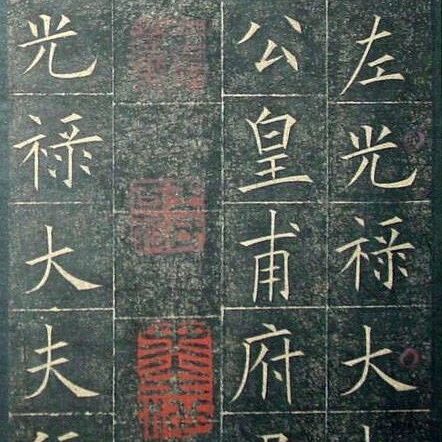 左光禄大
公皇甫府
光禄大夫